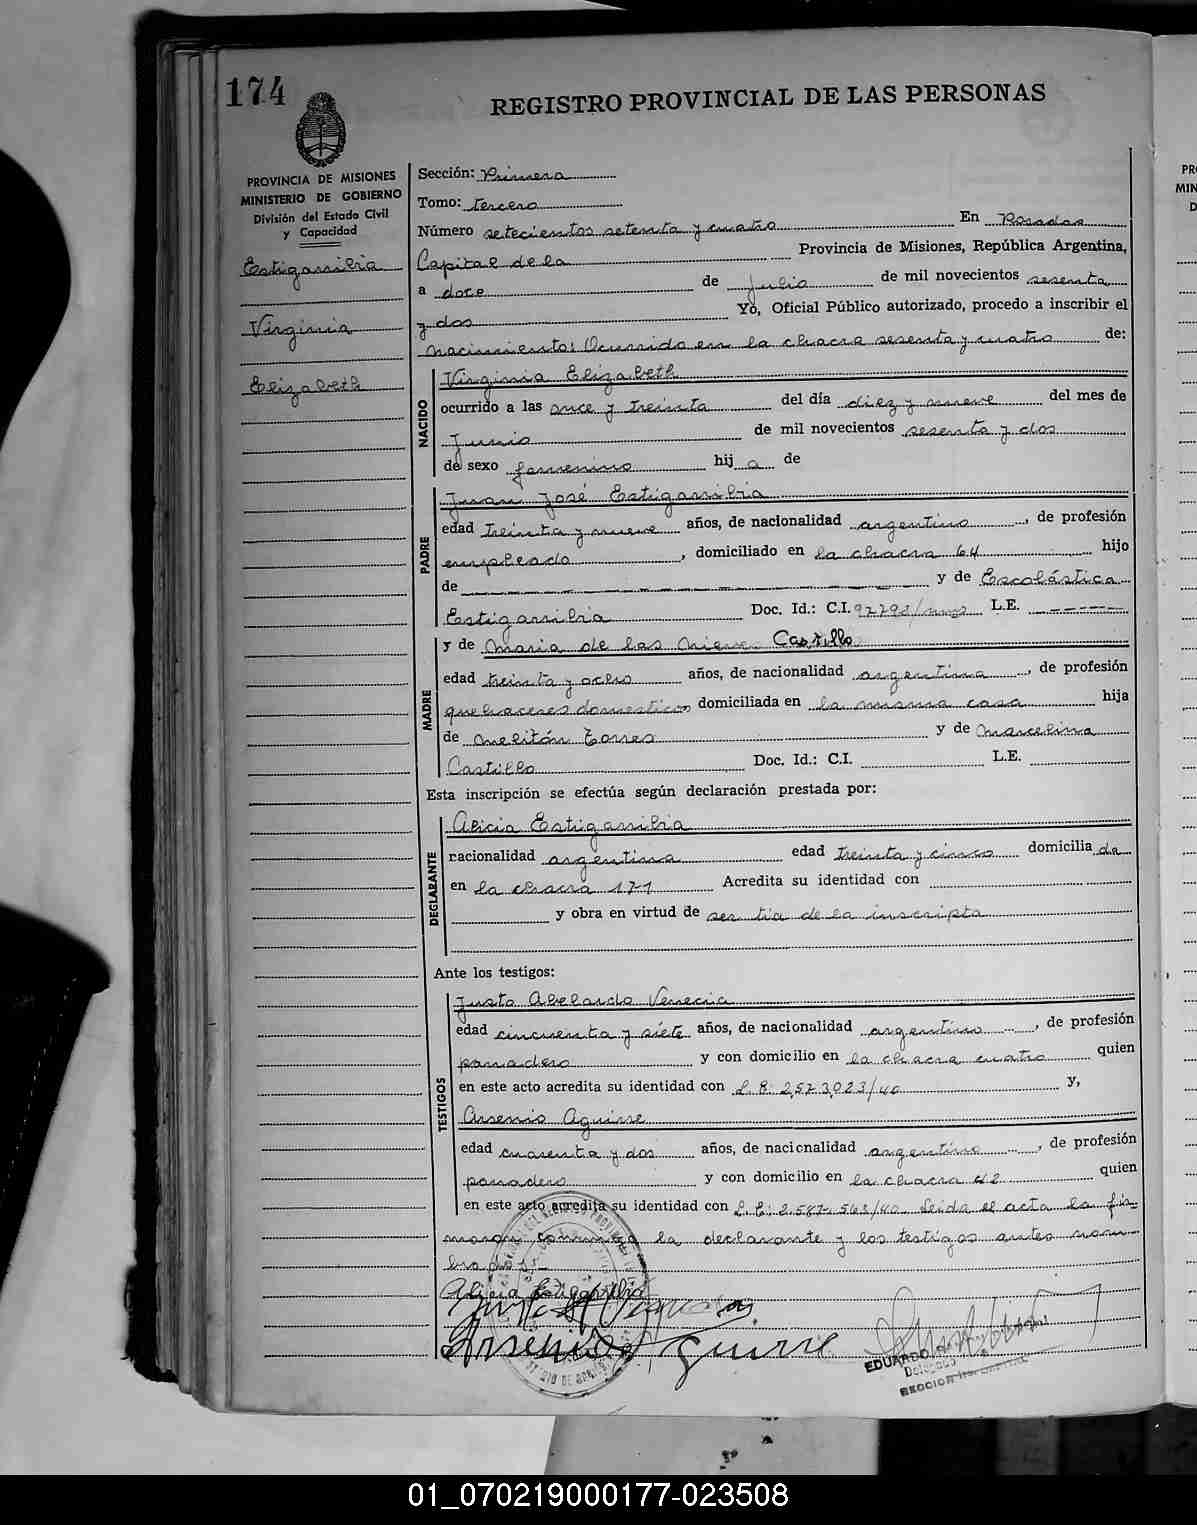 174
REGISTRO PROVINCIAL DE LAS PERSONAS
PROVINCIA DE MISIONES
MINISTERIO DE GOBIERNO
División del Estado Civil
y Capacidad
Estigarribia
Virginia
Elizabeth
Sección: Primera
Tomo: tercero
Número setecientos setenta y cuatro En Posadas
Capital de la Provincia de Misiones, República Argentina,
a doce de Julio de mil novecientos sesenta
y dos Yo, Oficial Público autorizado, procedo a inscribir el
nacimiento: Ocurrido en la chacra sesenta y cuatro de:
NACIDO
Virginia Elizabeth
ocurrido a las once y treinta del día diez y nueve del mes de
Junio de mil novecientos sesenta y dos
de sexo femenino hij a de
PADRE
Juan José Estigarribia
edad treinta y nueve años, de nacionalidad argentino, de profesión
empleado, domiciliado en la chacra 64 hijo
de y de Escolástica
Estigarribia Doc. Id.: C.I. L.E.
MADRE
y de Maria de las Nieves Castillo
edad treinta y ocho años, de nacionalidad argentina, de profesión
quehaceres domesticos domiciliada en la misma casa hija
de Melitón Torres y de Marcelina
Castillo Doc. Id.: C.I. L.E.
Esta inscripción se efectúa según declaración prestada por:
DECLARANTE
Alicia Estigarribia
racionalidad argentina edad treinta y cinco domicilia da
en la chacra 171 Acredita su identidad con
y obra en virtud de ser tia de la inscripta
Ante los testigos:
TESTIGOS
Justo Abelardo Venecia
edad cincuenta y siete años, de nacionalidad argentino, de profesión
panadero y con domicilio en la chacra cuatro quien
en este acto acredita su identidad con L.E. 2.573.023/40 y,
Arsenio Aguirre
edad cuarenta y dos años, de nacionalidad argentino, de profesión
panadero y con domicilio en la chacra quien
en este acto acredita su identidad con L.E. 2.587.563/40 Leida el acta la fir-
maron conmigo la declarante y los testigos antes nom-
brados.-
Alicia Estigarribia
Arsenio Aguirre
EDUARDO
01_070219000177-023508